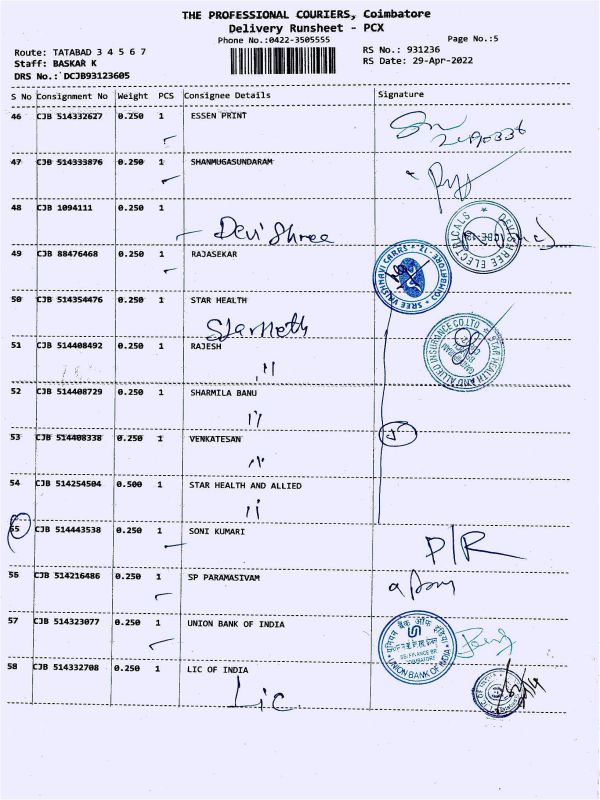 THE PROFESSIONAL COURIERS, Coimbatore
Delivery Runsheet - PCX
Phone No.:0422-3505555
Page No.:5
Route: TATABAD 3 4 5 6 7
RS No.: 931236
Staff: BASKAR K
RS Date: 29-Apr-2022
DRS No.: DCJB93123605
S No Consignment No Weight PCS Consignee Details Signature
46 CJB 514332627 0.250 1 ESSEN PRINT
47 CJB 514333876 0.250 1 SHANMUGASUNDARAM
48 CJB 1094111 0.250 1
Devi Shree
DEVI SHREE ELECTRICALS
49 CJB 88476468 0.250 1 RAJASEKAR
SREE VAISHNAVI CARRS COIMBATORE - 12
50 CJB 514354476 0.250 1 STAR HEALTH
STAR HEALTH AND ALLIED INSURANCE CO LTD
51 CJB 514408492 0.250 1 RAJESH
52 CJB 514408729 0.250 1 SHARMILA BANU
53 CJB 514408338 0.250 1 VENKATESAN
5
54 CJB 514254504 0.500 1 STAR HEALTH AND ALLIED
55 CJB 514443538 0.250 1 SONI KUMARI
P/R
56 CJB 514216486 0.250 1 SP PARAMASIVAM
57 CJB 514323077 0.250 1 UNION BANK OF INDIA
यूनियन बैंक ऑफ इंडिया
UNION BANK OF INDIA
58 CJB 514332708 0.250 1 LIC OF INDIA
Lic